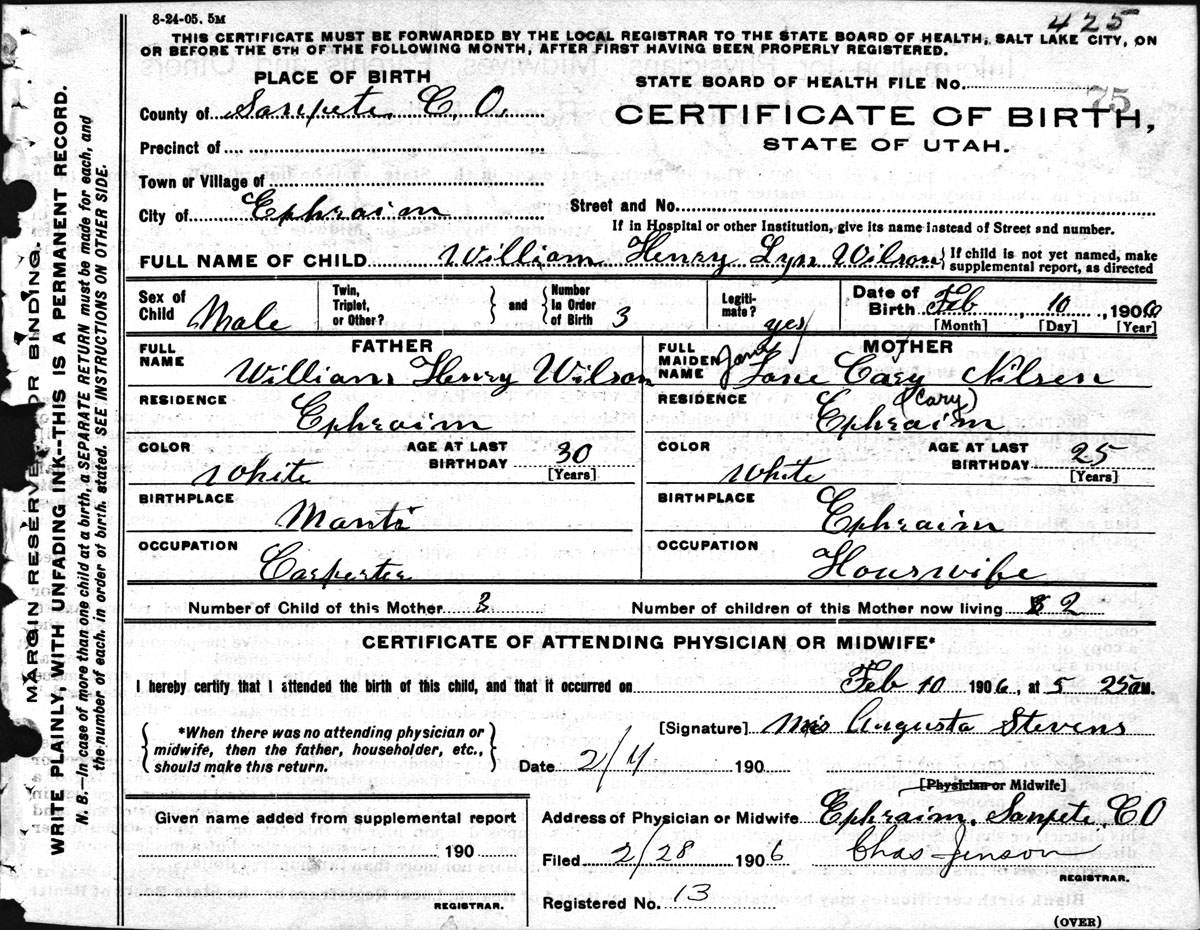 8-24-05. 5M
425
THIS CERTIFICATE MUST BE FORWARDED BY THE LOCAL REGISTRAR TO THE STATE BOARD OF HEALTH, SALT LAKE CITY, ON
OR BEFORE THE 5TH OF THE FOLLOWING MONTH, AFTER FIRST HAVING BEEN PROPERLY REGISTERED.
PLACE OF BIRTH
STATE BOARD OF HEALTH FILE No.
75
County of Sanpete C. O.
CERTIFICATE OF BIRTH,
STATE OF UTAH.
Precinct of
Town or Village of
City of Ephraim
Street and No.
If in Hospital or other Institution, give its name instead of Street and number.
FULL NAME OF CHILD William Henry Lyn Wilson { If child is not yet named, make supplemental report, as directed
Sex of Child Male
Twin, Triplet, or Other? } and { Number In Order of Birth 3
Legitimate? yes
Date of Birth Feb 10, 1906
[Month] [Day] [Year]
FATHER
FULL NAME William Henry Wilson
RESIDENCE Ephraim
COLOR White AGE AT LAST BIRTHDAY 30 [Years]
BIRTHPLACE Manti
OCCUPATION Carpenter
MOTHER
FULL MAIDEN NAME Jane Cary Nilsen
Jane
(Cary)
RESIDENCE Ephraim
COLOR White AGE AT LAST BIRTHDAY 25 [Years]
BIRTHPLACE Ephraim
OCCUPATION Hourwife
Number of Child of this Mother 3 Number of children of this Mother now living 2
CERTIFICATE OF ATTENDING PHYSICIAN OR MIDWIFE*
I hereby certify that I attended the birth of this child, and that it occurred on Feb 10 1906, at 5 25 a M.
{ *When there was no attending physician or midwife, then the father, householder, etc., should make this return. }
[Signature] Mrs Augusta Stevens
Date 2/ 190
[Physician or Midwife]
Given name added from supplemental report
190
REGISTRAR.
Address of Physician or Midwife Ephraim, Sanpete C. O
Filed 2/28 1906 Chas Jenson
REGISTRAR.
Registered No. 13
(OVER)
MARGIN RESERVED FOR BINDING.
WRITE PLAINLY, WITH UNFADING INK--THIS IS A PERMANENT RECORD.
N. B.--In case of more than one child at a birth, a SEPARATE RETURN must be made for each, and
the number of each, in order of birth, stated. SEE INSTRUCTIONS ON OTHER SIDE.